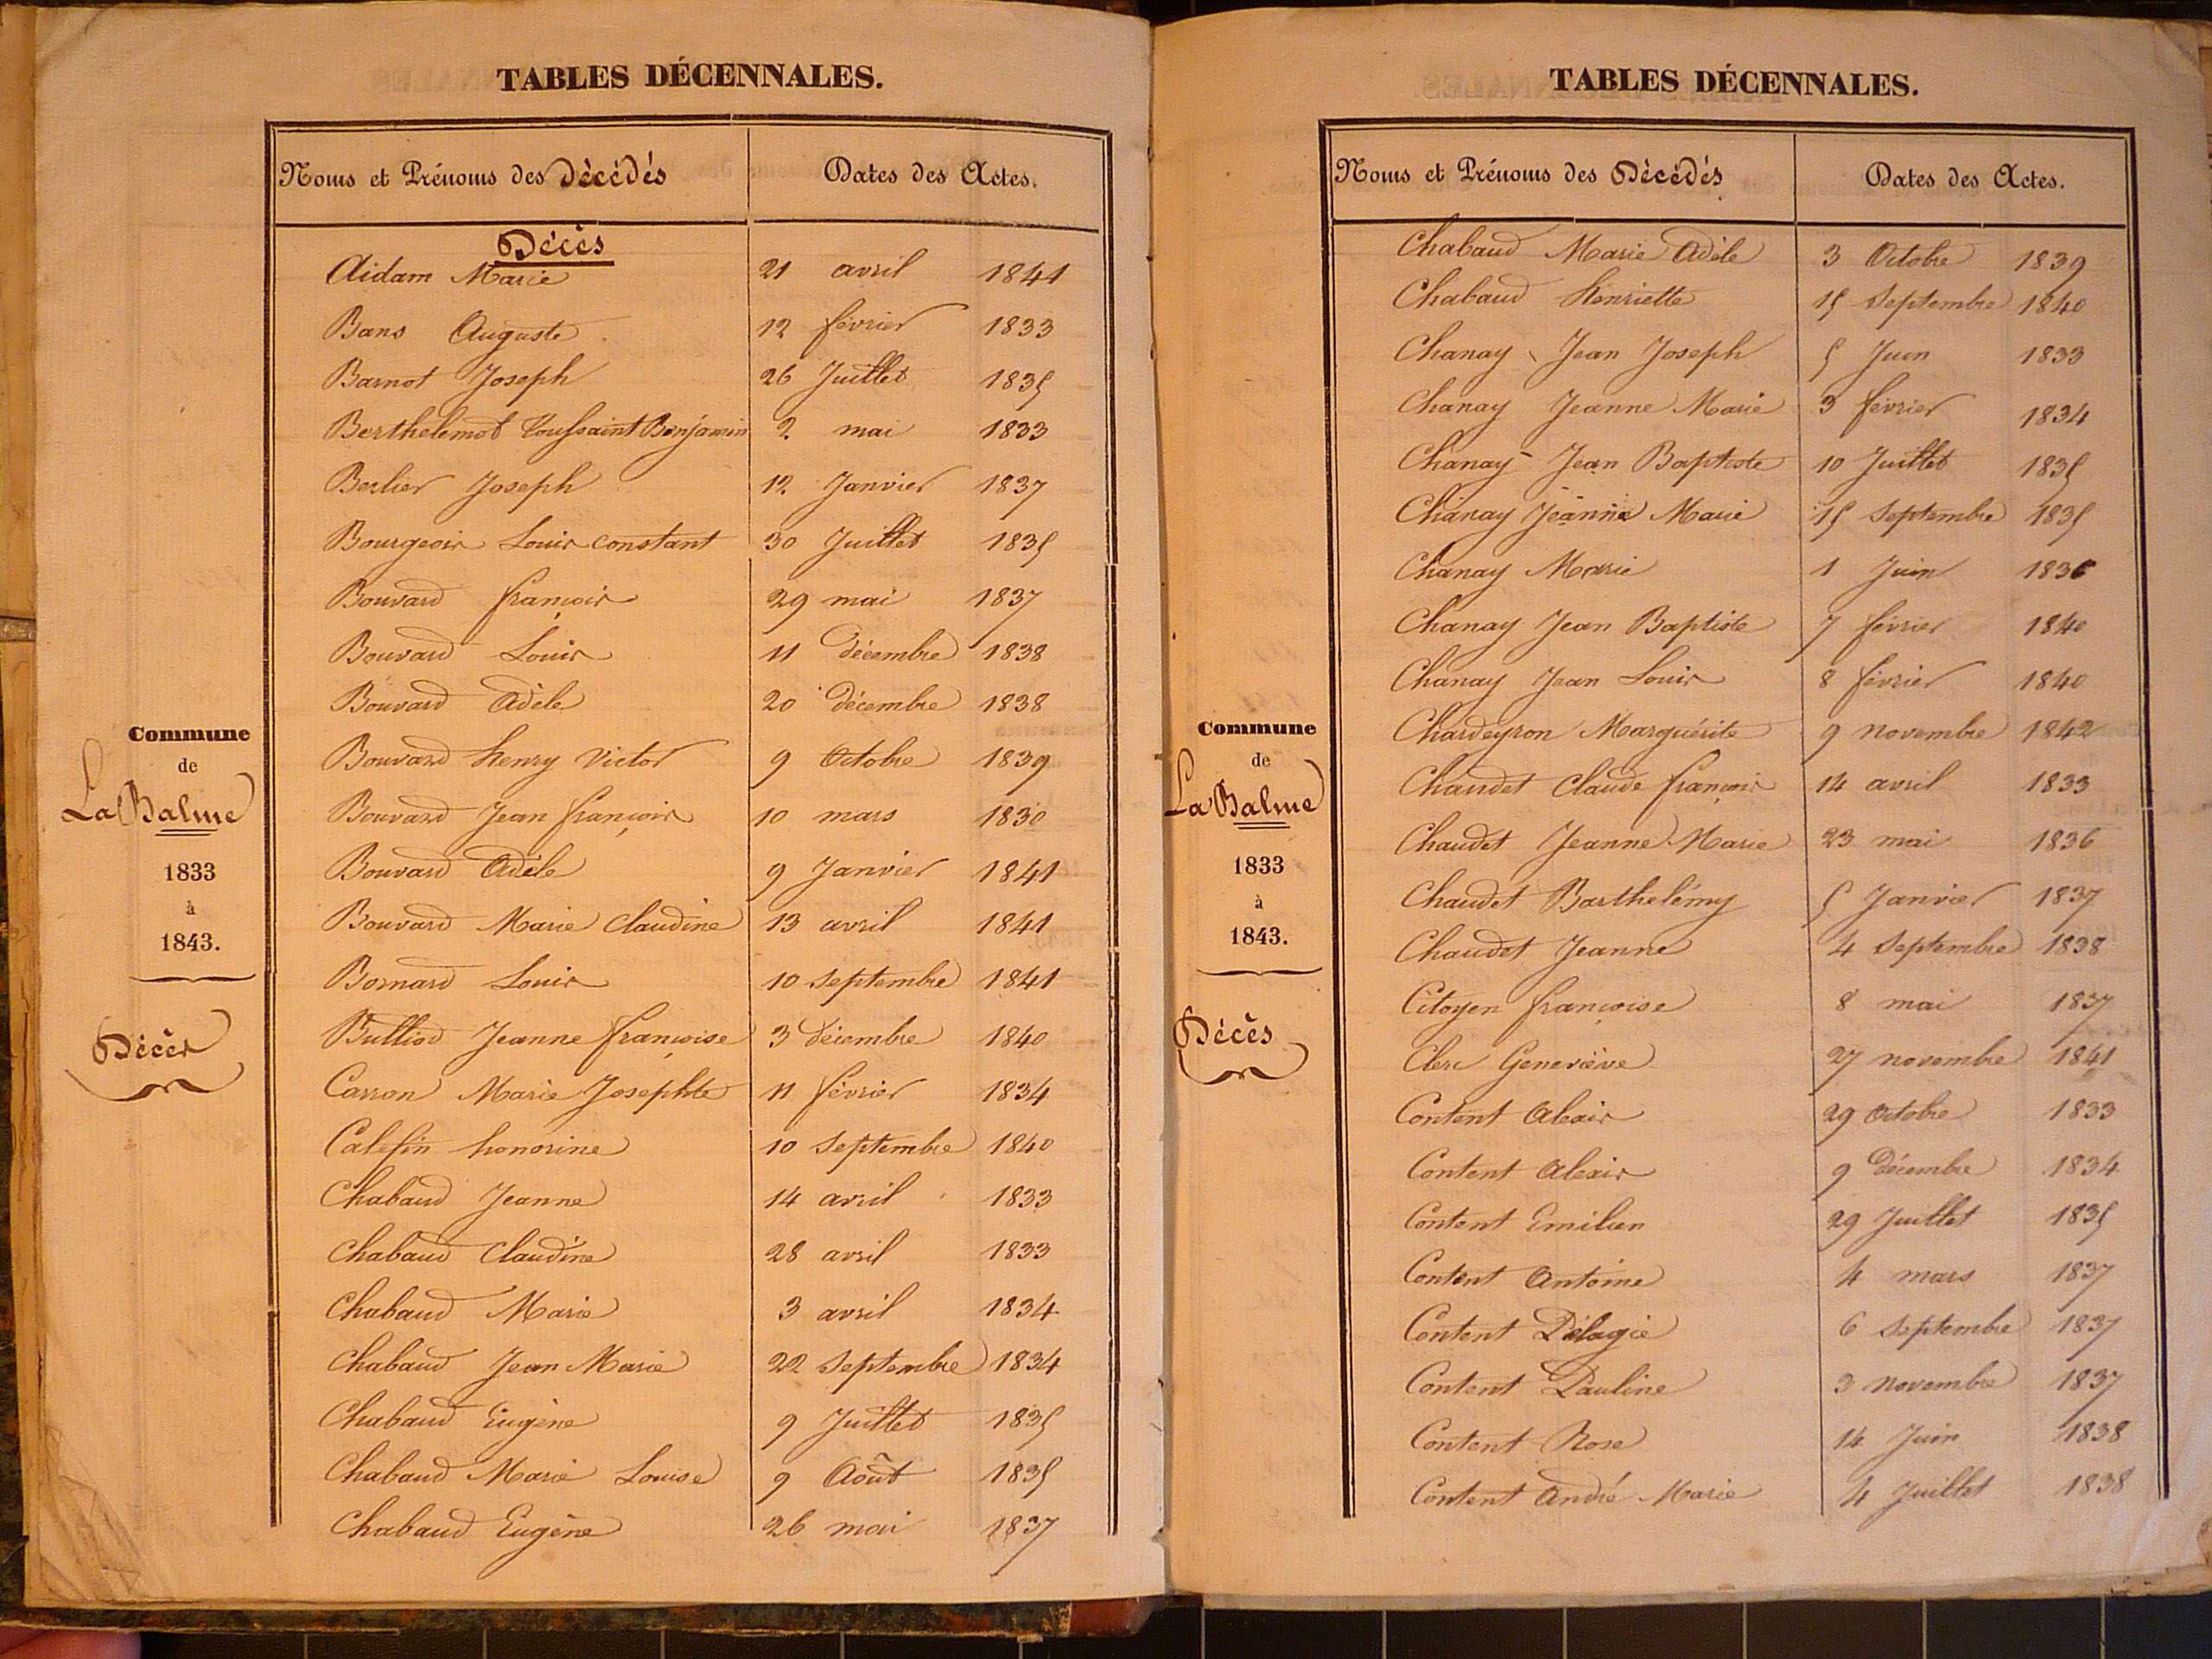 TABLES DÉCENNALES.
Noms et Prénoms des Décédés
Dates des Actes.
Décès
Aidam Marie 21 avril 1841
Bans Auguste 12 février 1833
Barnot Joseph 26 Juillet 1835
Berthelemot Toussaint Benjamin 2 mai 1833
Berlier Joseph 12 Janvier 1837
Bourgeois Louis constant 30 Juillet 1835
Bouvard françois 29 mai 1837
Bouvard Louis 11 décembre 1838
Bouvard Adèle 20 décembre 1838
Bouvard henry victor 9 Octobre 1839
Bouvard Jean françois 10 mars 1830
Bouvard Adèle 9 Janvier 1841
Bouvard Marie Claudine 13 avril 1841
Bornard Louis 10 septembre 1841
Bulliod Jeanne françoise 3 décembre 1840
Carron Marie Josephte 11 février 1834
Calefin honorine 10 septembre 1840
Chabaud Jeanne 14 avril 1833
Chabaud Claudine 28 avril 1833
Chabaud Marie 3 avril 1834
Chabaud Jean Marie 22 septembre 1834
Chabaud Eugène 9 Juillet 1835
Chabaud Marie Louise 9 Août 1835
Chabaud Eugène 26 mai 1837
Commune
de
La Balme
1833
à
1843.
Décès
TABLES DÉCENNALES.
Noms et Prénoms des Décédés
Dates des Actes.
Chabaud Marie Adèle 3 Octobre 1839
Chabaud henriette 15 septembre 1840
Chanay Jean Joseph 5 Juin 1833
Chanay Jeanne Marie 3 février 1834
Chanay Jean Baptiste 10 Juillet 1835
Chanay Jeanne Marie 15 septembre 1835
Chanay Marie 1 Juin 1836
Chanay Jean Baptiste 7 février 1840
Chanay Jean Louis 8 février 1840
Chardeyron Marguérite 9 novembre 1842
Chaudet Claude françois 14 avril 1833
Chaudet Jeanne Marie 23 mai 1836
Chaudet Barthelémy 5 Janvier 1837
Chaudet Jeanne 4 septembre 1838
Citoyen françoise 8 mai 1837
Clerc Geneviève 27 novembre 1841
Content Alexis 29 Octobre 1833
Content Alexis 9 décembre 1834
Content Emilien 29 Juillet 1835
Content Antoine 4 mars 1837
Content Pélagie 6 septembre 1837
Content Pauline 3 novembre 1837
Content Rose 14 Juin 1838
Content André Marie 4 Juillet 1838
Commune
de
La Balme
1833
à
1843.
Décès